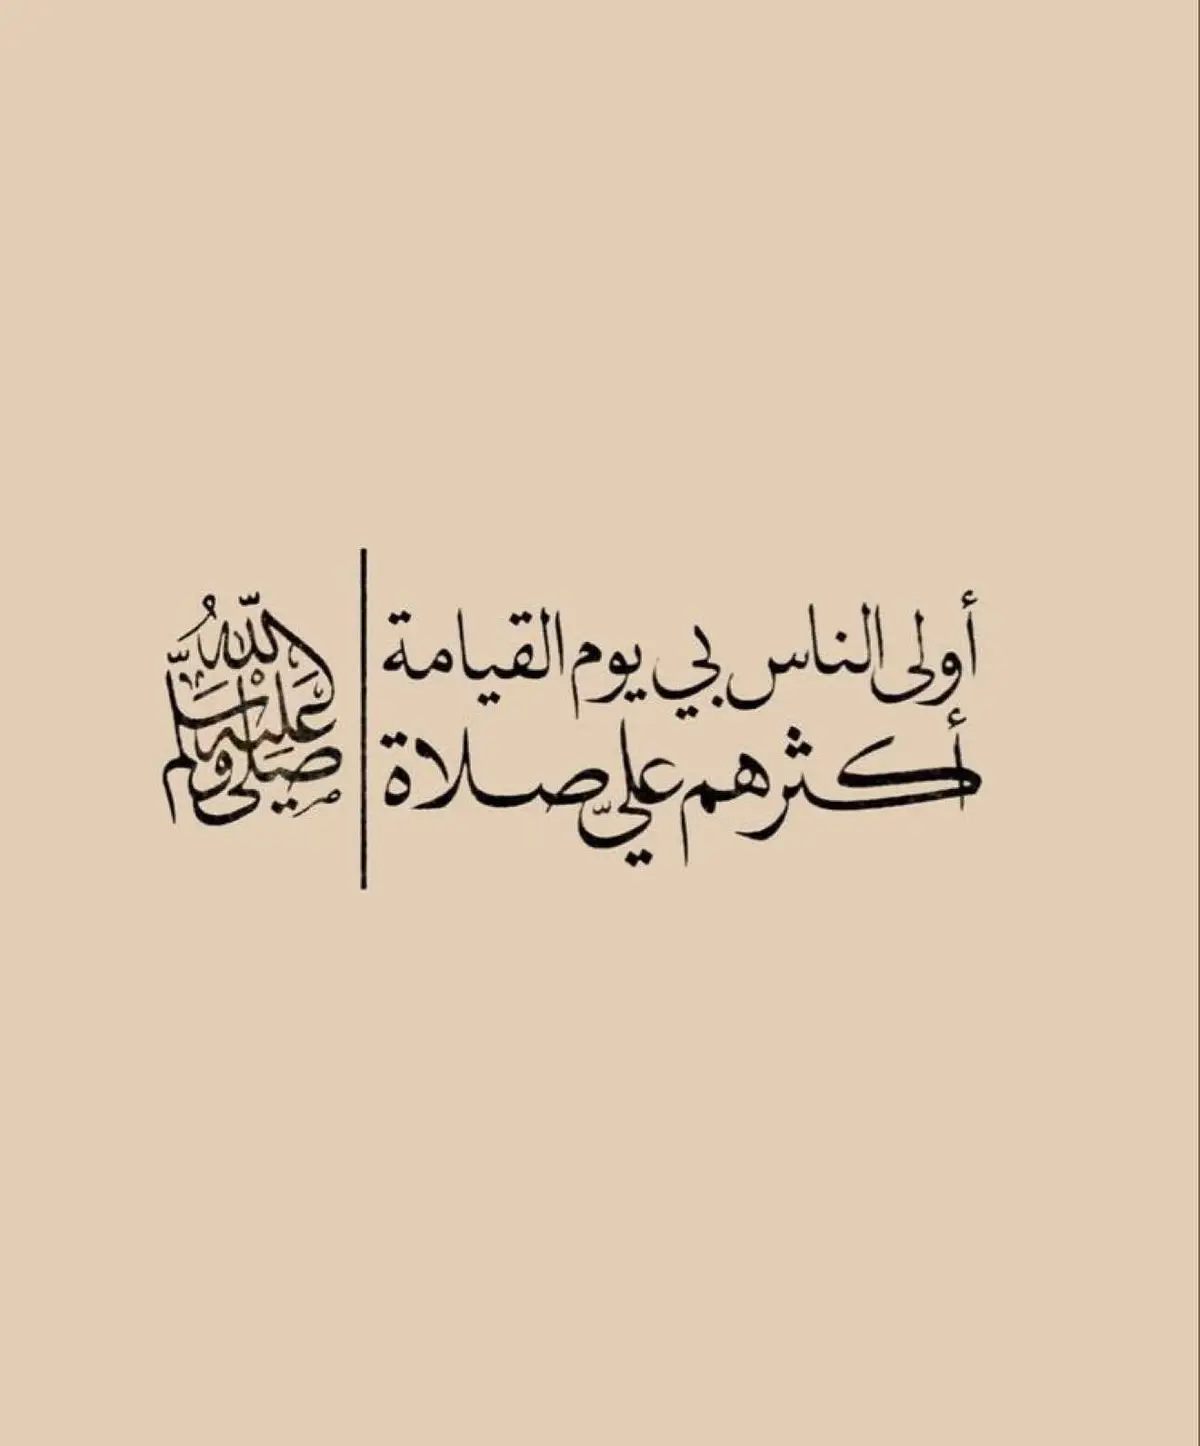 أولى الناس بي يوم القيامة
أكثرهم عليَّ صلاة
صلى الله عليه وسلم